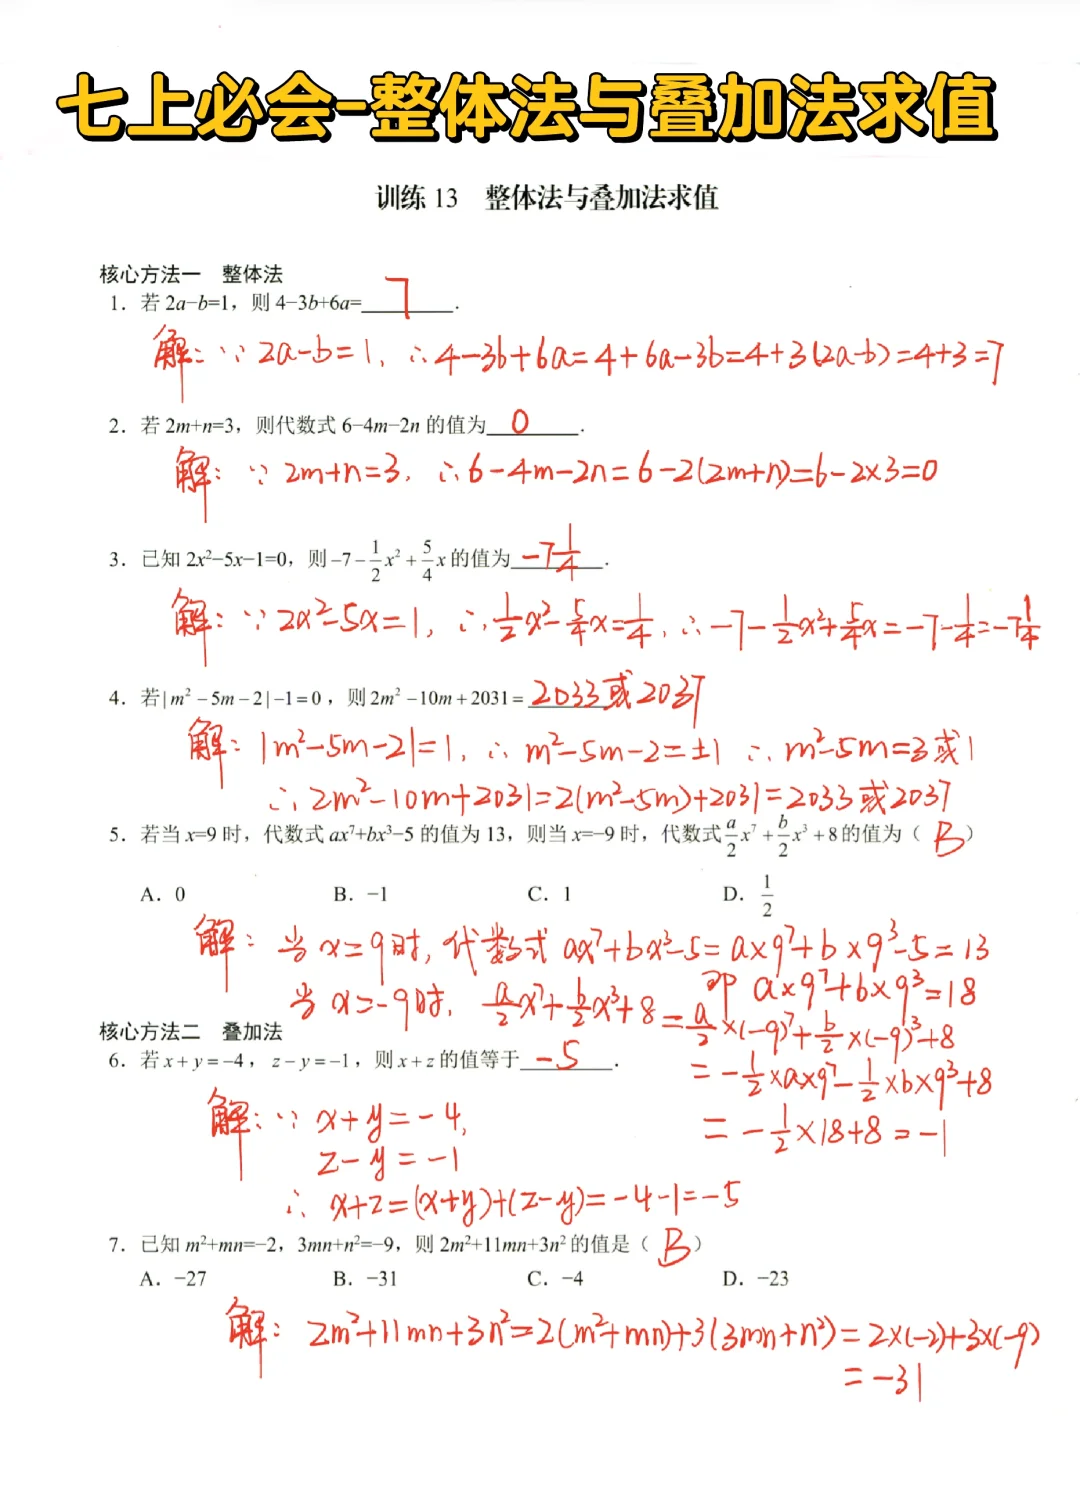 七上必会-整体法与叠加法求值
训练 13 整体法与叠加法求值
核心方法一 整体法
1. 若 2a-b=1，则 4-3b+6a= 7 .
解：∵ 2a-b=1, ∴ 4-3b+6a=4+6a-3b=4+3(2a-b)=4+3=7
2. 若 2m+n=3，则代数式 6-4m-2n 的值为 0 .
解：∵ 2m+n=3, ∴ 6-4m-2n=6-2(2m+n)=6-2×3=0
3. 已知 2x²-5x-1=0，则 -7-1/2x²+5/4x 的值为 -7 1/4 .
解：∵ 2x²-5x=1, ∴ 1/2x²-5/4x=1/4, ∴ -7-1/2x²+5/4x=-7-1/4=-7 1/4
4. 若|m²-5m-2|-1=0，则 2m²-10m+2031= 2033或2037
解：|m²-5m-2|=1, ∴ m²-5m-2=±1 ∴ m²-5m=3或1
∴ 2m²-10m+2031=2(m²-5m)+2031=2033或2037
5. 若当 x=9 时，代数式 ax⁷+bx³-5 的值为 13，则当 x=-9 时，代数式 a/2x⁷+b/2x³+8 的值为（ B ）
A. 0 B. -1 C. 1 D. 1/2
解：当 x=9时, 代数式 ax⁷+bx³-5=a×9⁷+b×9³-5=13
即 a×9⁷+b×9³=18
当 x=-9时, a/2x⁷+b/2x³+8=a/2×(-9)⁷+b/2×(-9)³+8
=-1/2×a×9⁷-1/2×b×9³+8
=-1/2×18+8=-1
核心方法二 叠加法
6. 若 x+y=-4，z-y=-1，则 x+z 的值等于 -5 .
解：∵ x+y=-4,
z-y=-1
∴ x+z=(x+y)+(z-y)=-4-1=-5
7. 已知 m²+mn=-2，3mn+n²=-9，则 2m²+11mn+3n² 的值是（ B ）
A. -27 B. -31 C. -4 D. -23
解：2m²+11mn+3n²=2(m²+mn)+3(3mn+n²)=2×(-2)+3×(-9)
=-31